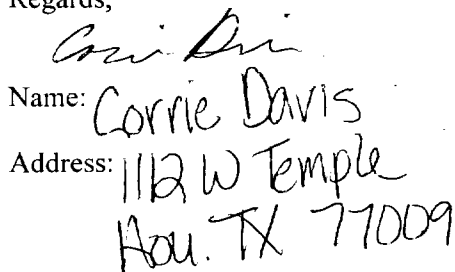 Regards,
Name: Corrie Davis
Address: 1112 W Temple
Hou. TX 77009